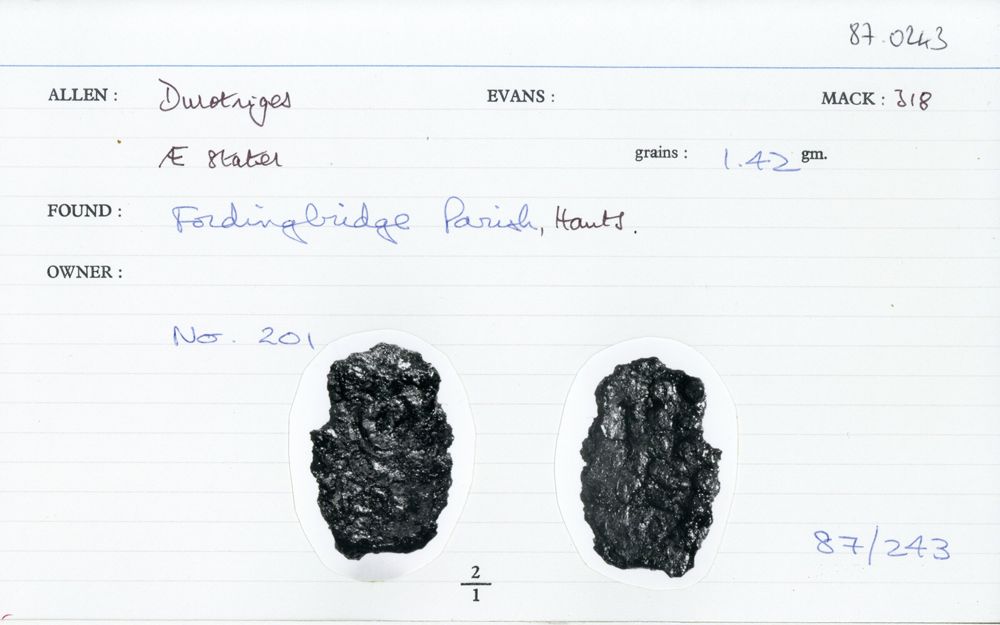 87.0243
ALLEN : Durotriges EVANS : MACK : 318
Æ stater grains : 1.42 gm.
FOUND : Fordingbridge Parish, Hants.
OWNER :
No. 201
87/243
2
1